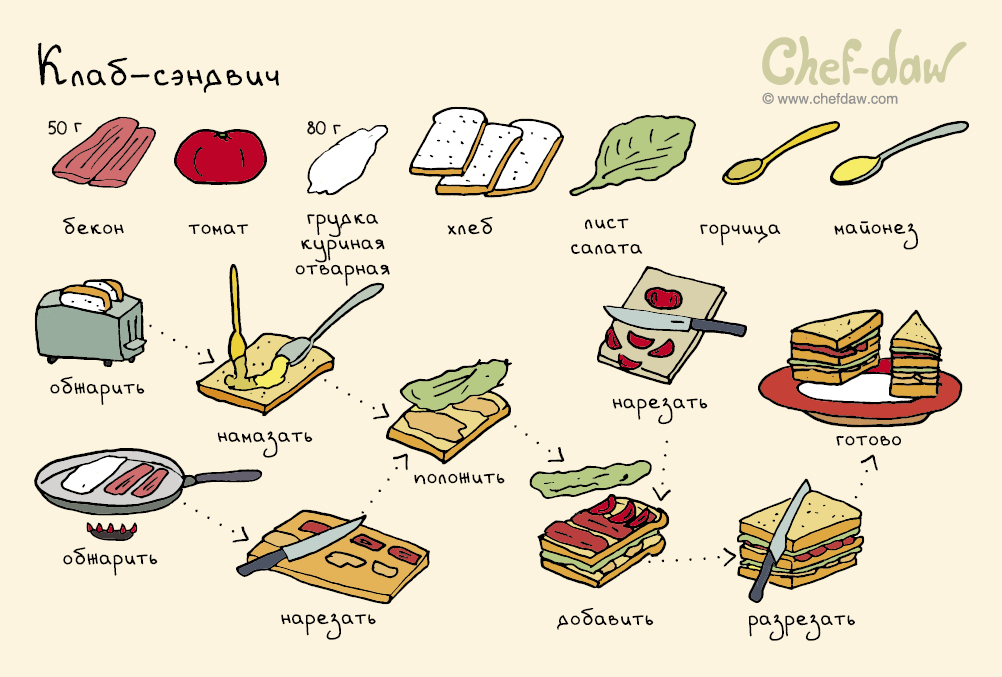 Клаб-сэндвич
Chef-daw
© www.chefdaw.com
50 г
80 г
бекон
томат
грудка
куриная
отварная
хлеб
лист
салата
горчица
майонез
обжарить
намазать
положить
нарезать
готово
обжарить
нарезать
добавить
разрезать